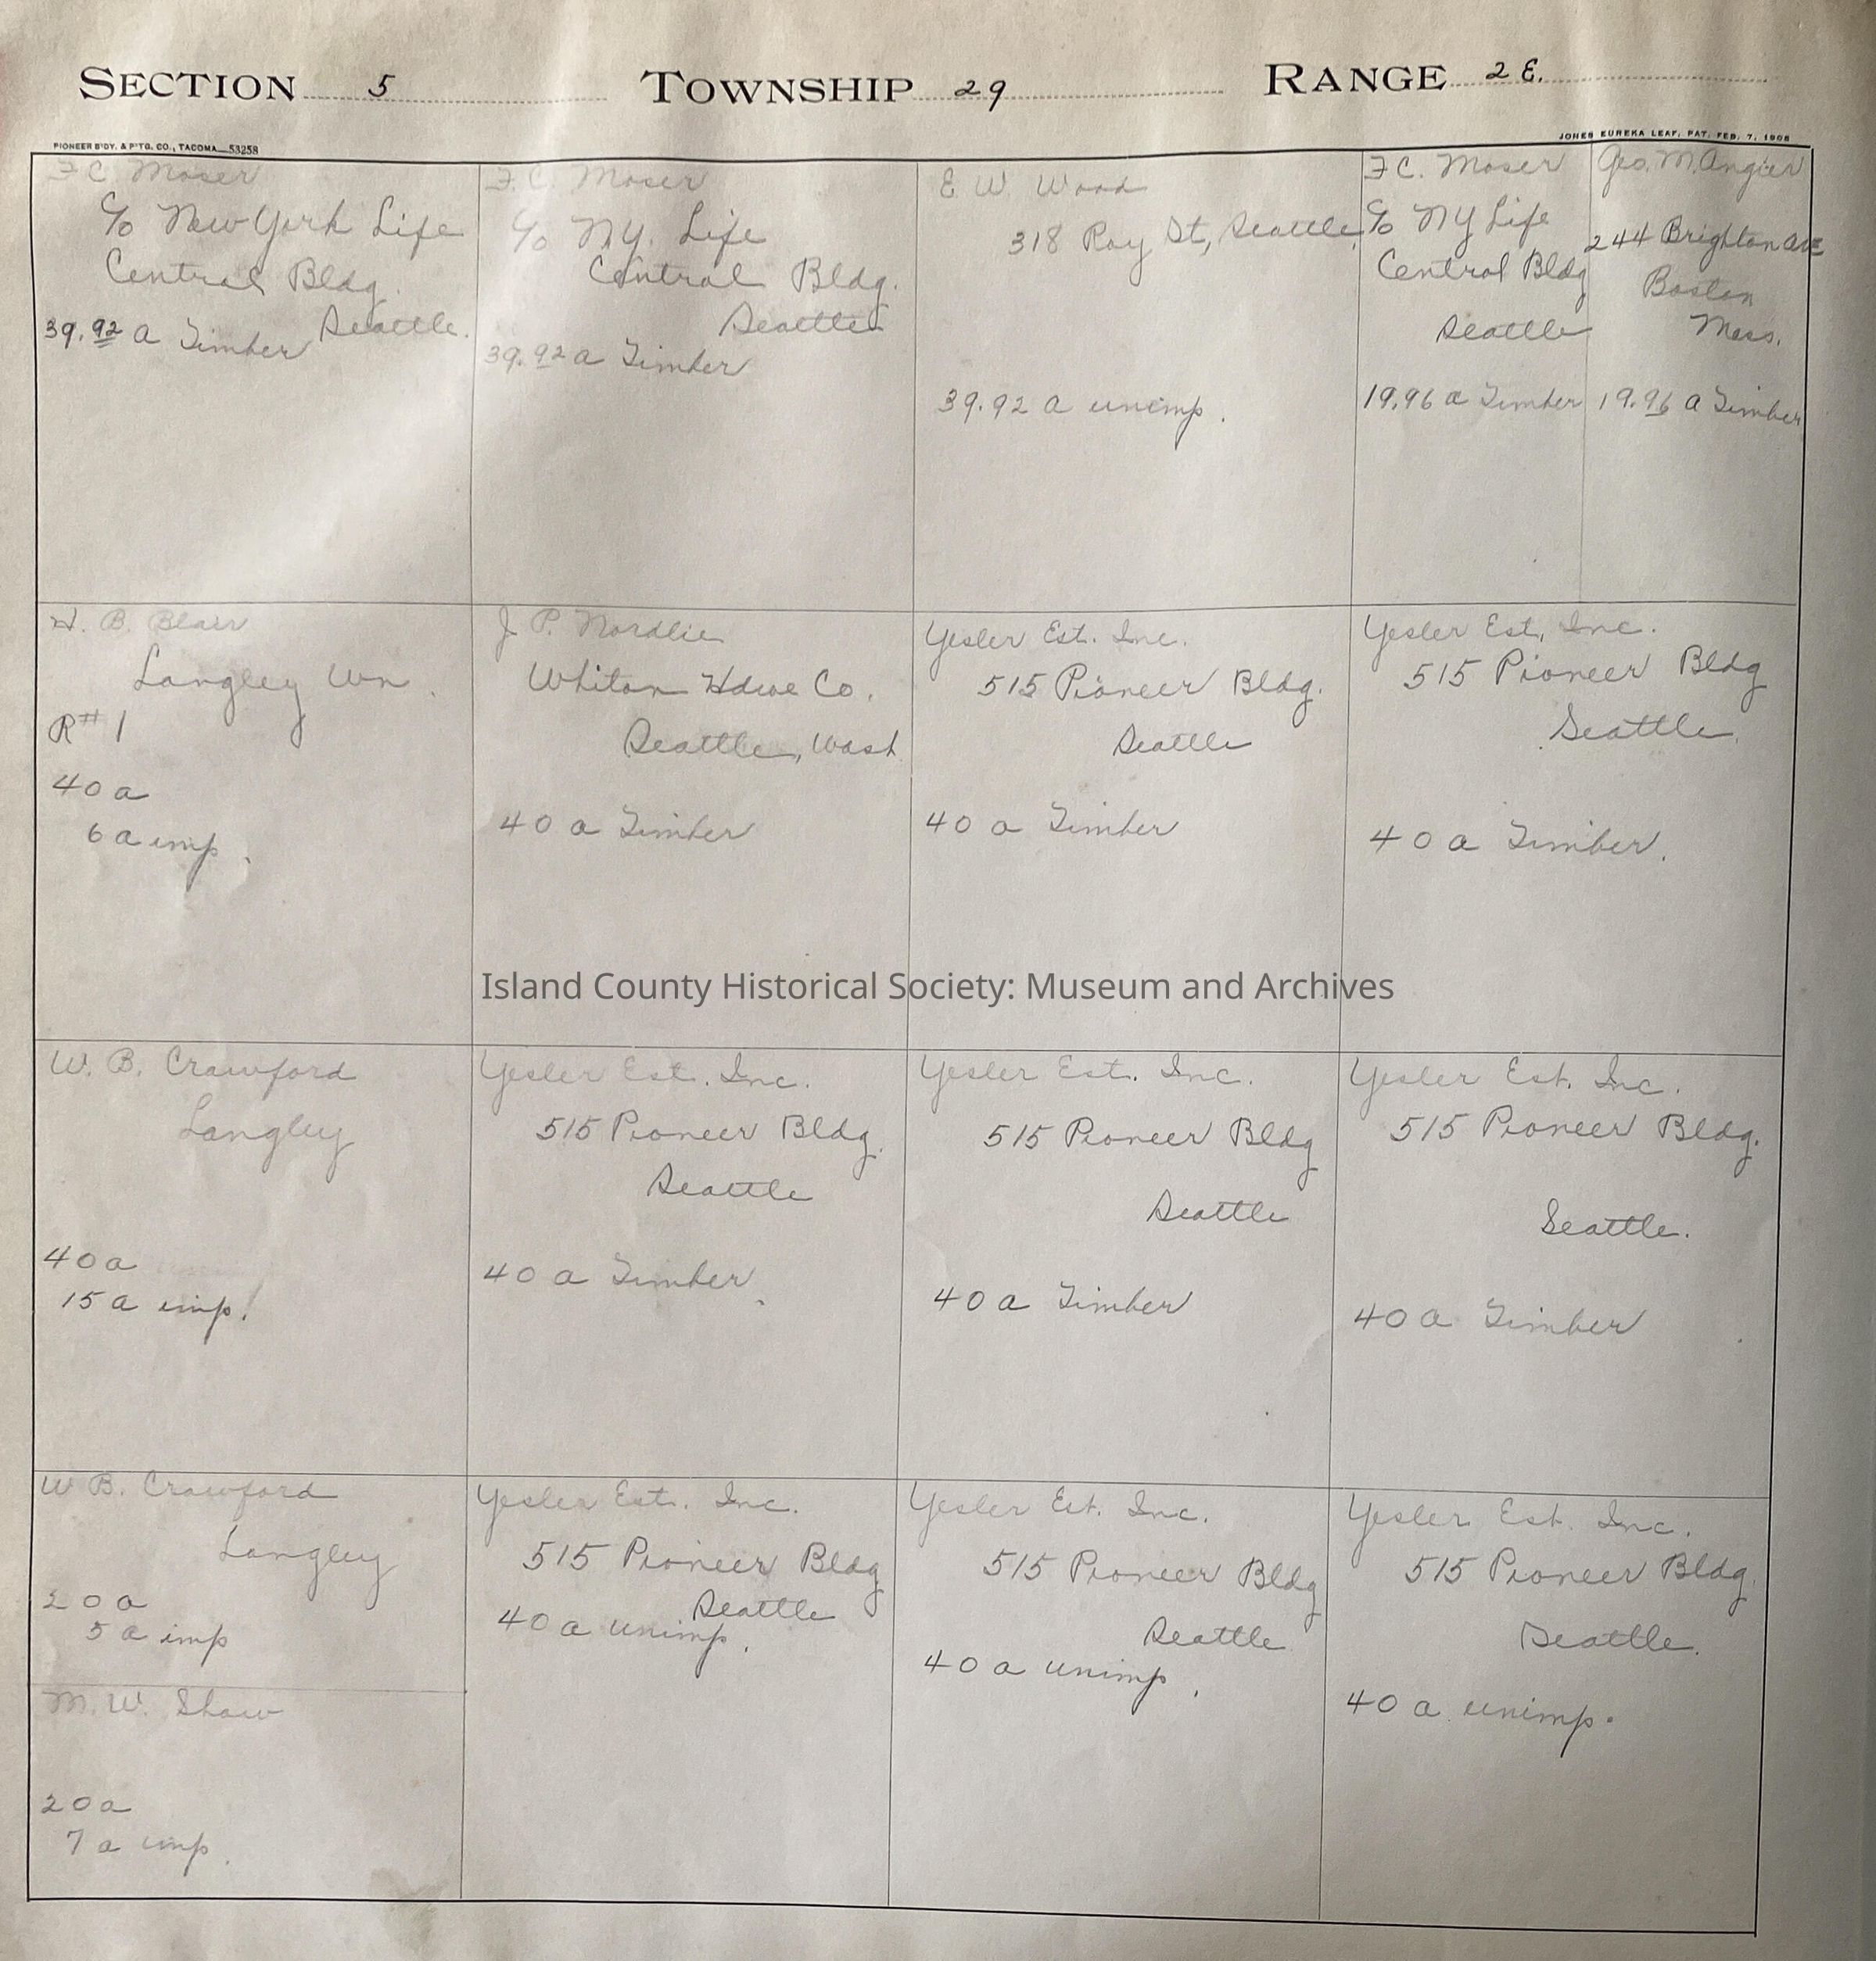 SECTION 5 TOWNSHIP 29 RANGE 2 E.
PIONEER B'DY. & P'T'G. CO., TACOMA 53258
JONES EUREKA LEAF, PAT. FEB. 7, 1906
F C. Moser
c/o New York Life
Central Bldg.
Seattle.
39.92 a Timber
F. C. Moser
c/o N.Y. Life
Central Bldg.
Seattle
39.92 a Timber
E. W. Wood
318 Roy St, Seattle.
39.92 a unimp.
F C. Moser
c/o NY Life
Central Bldg
Seattle
19.96 a Timber
Geo. M. Angier
244 Brighton Ave
Boston
Mass.
19.96 a Timber
H. B. Blair
Langley Wn.
R#1
40 a
6 a imp.
J P. Nordlie
Whiton Hdwe Co.
Seattle, Wash
40 a Timber
Yesler Est. Inc.
515 Pioneer Bldg.
Seattle
40 a Timber
Yesler Est, Inc.
515 Pioneer Bldg
Seattle.
40 a Timber.
Island County Historical Society: Museum and Archives
W. B. Crawford
Langley
40 a
15 a imp.
Yesler Est. Inc.
515 Pioneer Bldg.
Seattle
40 a Timber.
Yesler Est. Inc.
515 Pioneer Bldg
Seattle
40 a Timber
Yesler Est. Inc.
515 Pioneer Bldg.
Seattle.
40 a Timber
W B. Crawford
Langley
20 a
5 a imp
M. W. Shaw
20 a
7 a imp.
Yesler Est. Inc.
515 Pioneer Bldg
Seattle
40 a unimp.
Yesler Est. Inc.
515 Pioneer Bldg
Seattle
40 a unimp.
Yesler Est. Inc.
515 Pioneer Bldg.
Seattle.
40 a unimp.